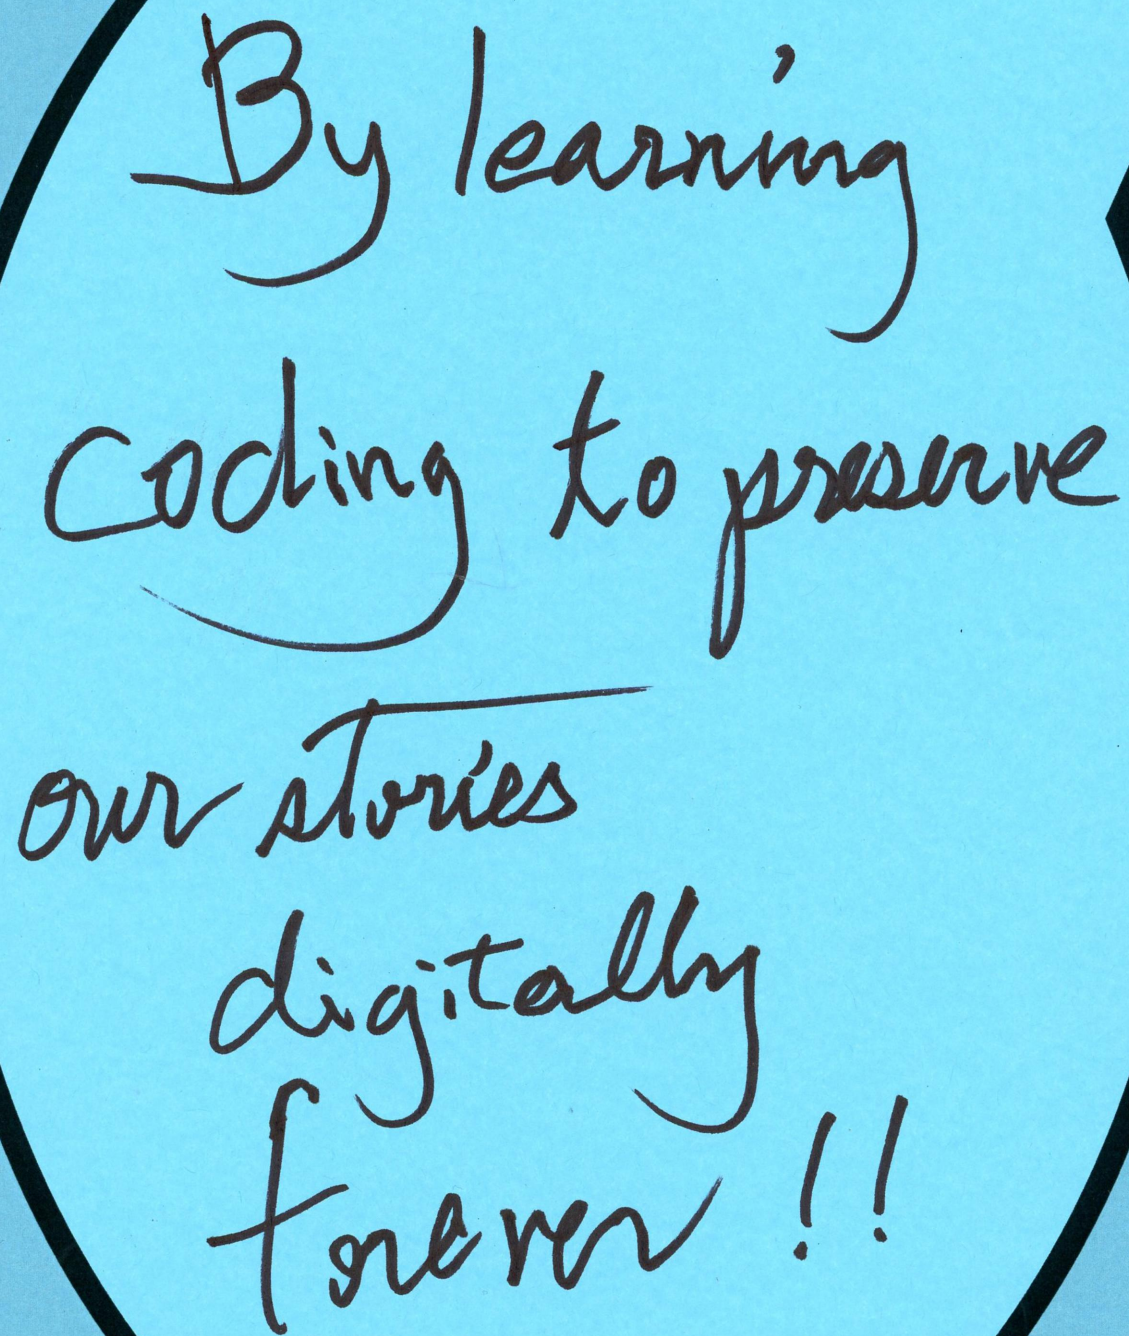 By learning
coding to preserve
our stories
digitally
forever!!